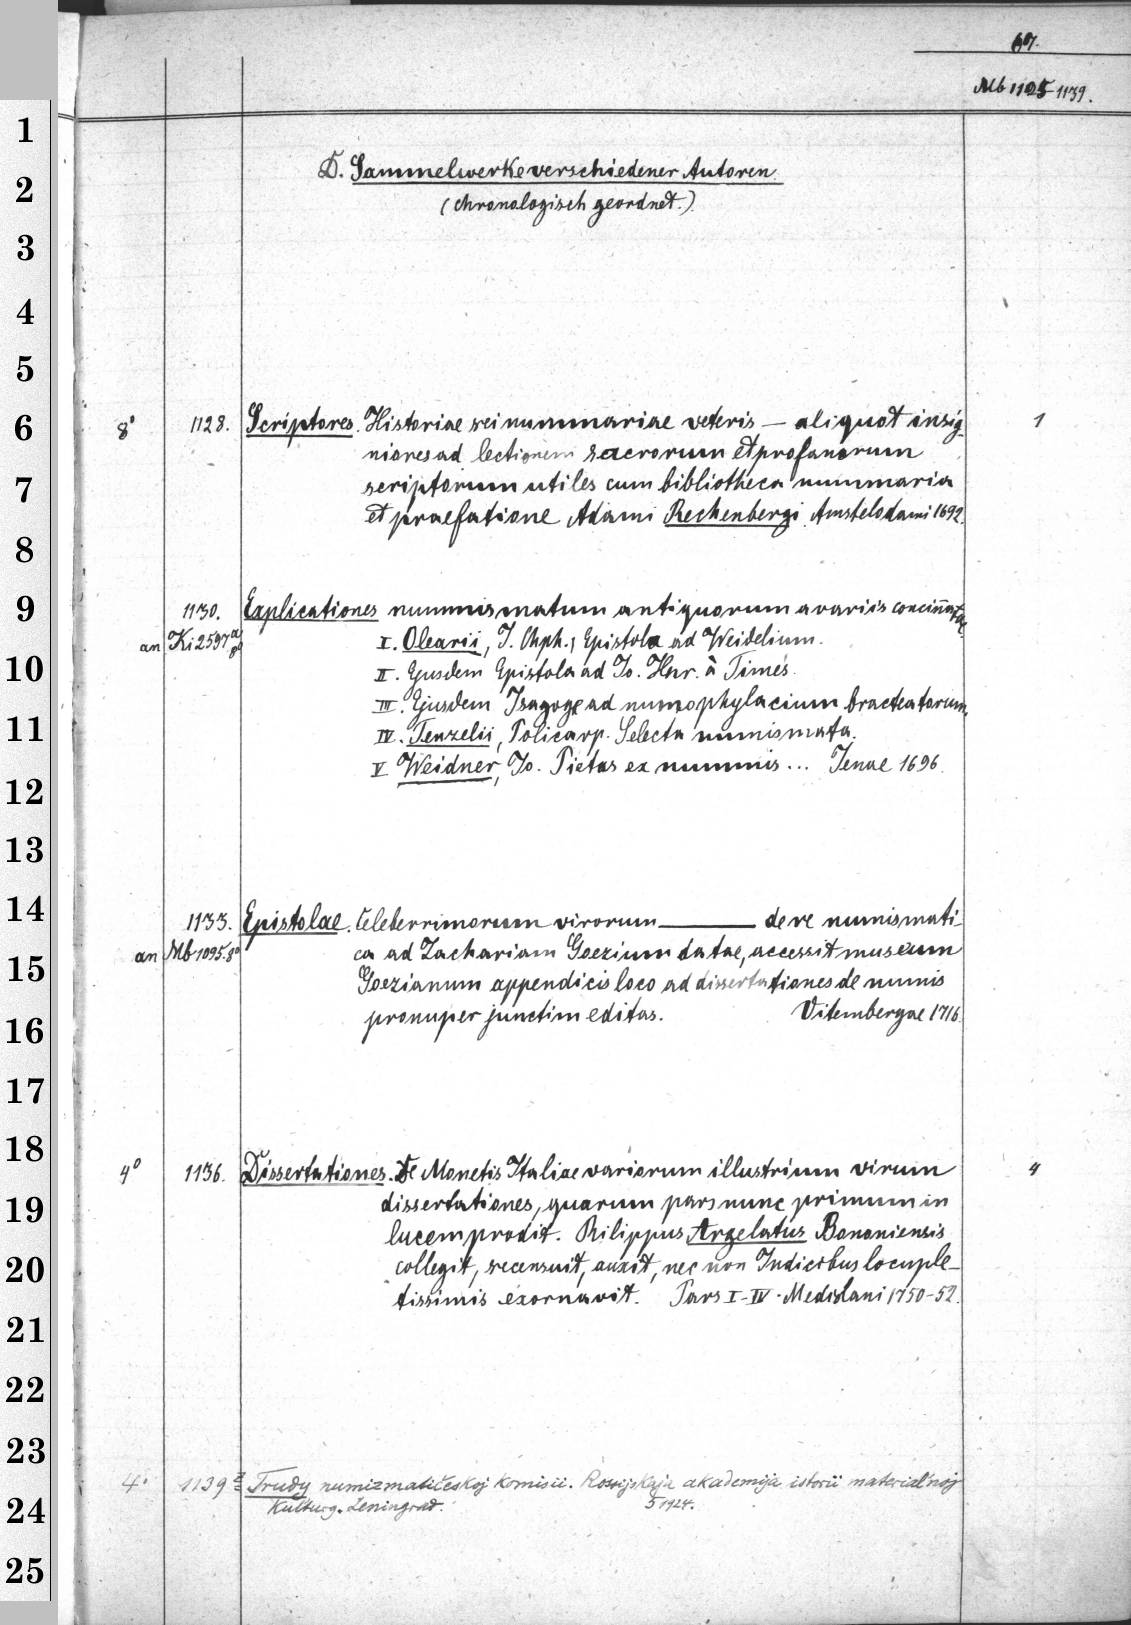 67.
Mb 1125-1139.
D. Sammelwerke verschiedener Autoren.
(chronologisch geordnet.)
8° 1128. Scriptores. Historiae rei nummariae veteris — aliquot insig- 1
niores ad lectionem sacrorum et profanorum
scriptorum utiles cum bibliotheca nummaria
et praefatione Adami Rechenbergi Amstelodami 1692.
1130. Explicationes nummismatum antiquorum a variis concinnatae
an Ki 2597 a 8° I. Olearii, J. Chph., Epistola ad Weidelium.
II. Ejusdem Epistola ad Jo. Henr. à Times.
III. Ejusdem Isagoge ad numophylacium bracteatorum.
IV. Tenzelii, Policarp. Selecta numismata.
V Weidner, Jo. Pietas ex nummis ... Jenae 1696.
1133. Epistolae. Celeberrimorum virorum ——— de re numismati-
an Mb 1095.8° ca ad Zachariam Goezium datae, accessit museum
Goezianum appendicis loco ad dissertationes de numis
pronuper junctim editas. Vitembergae 1716.
4° 1136. Dissertationes. De Monetis Italiae variorum illustrium virum 4
dissertationes, quarum pars nunc primum in
lucem prodit. Philippus Argelatus Bononiensis
collegit, recensuit, auxit, nec non Indicibus locuple-
tissimis exornavit. Pars I-IV. Mediolani 1750-52.
4° 1139 z Trudy numizmatičeskoj komisii. Rossijskaja akademija istorii material'noj
Kulturg. Leningrad. 5 1924.
1
2
3
4
5
6
7
8
9
10
11
12
13
14
15
16
17
18
19
20
21
22
23
24
25